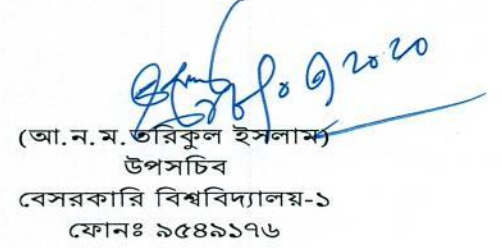 (আ.ন.ম. তরিকুল ইসলাম)
উপসচিব
বেসরকারি বিশ্ববিদ্যালয়-১
ফোনঃ ৯৫৪৯১৭৬